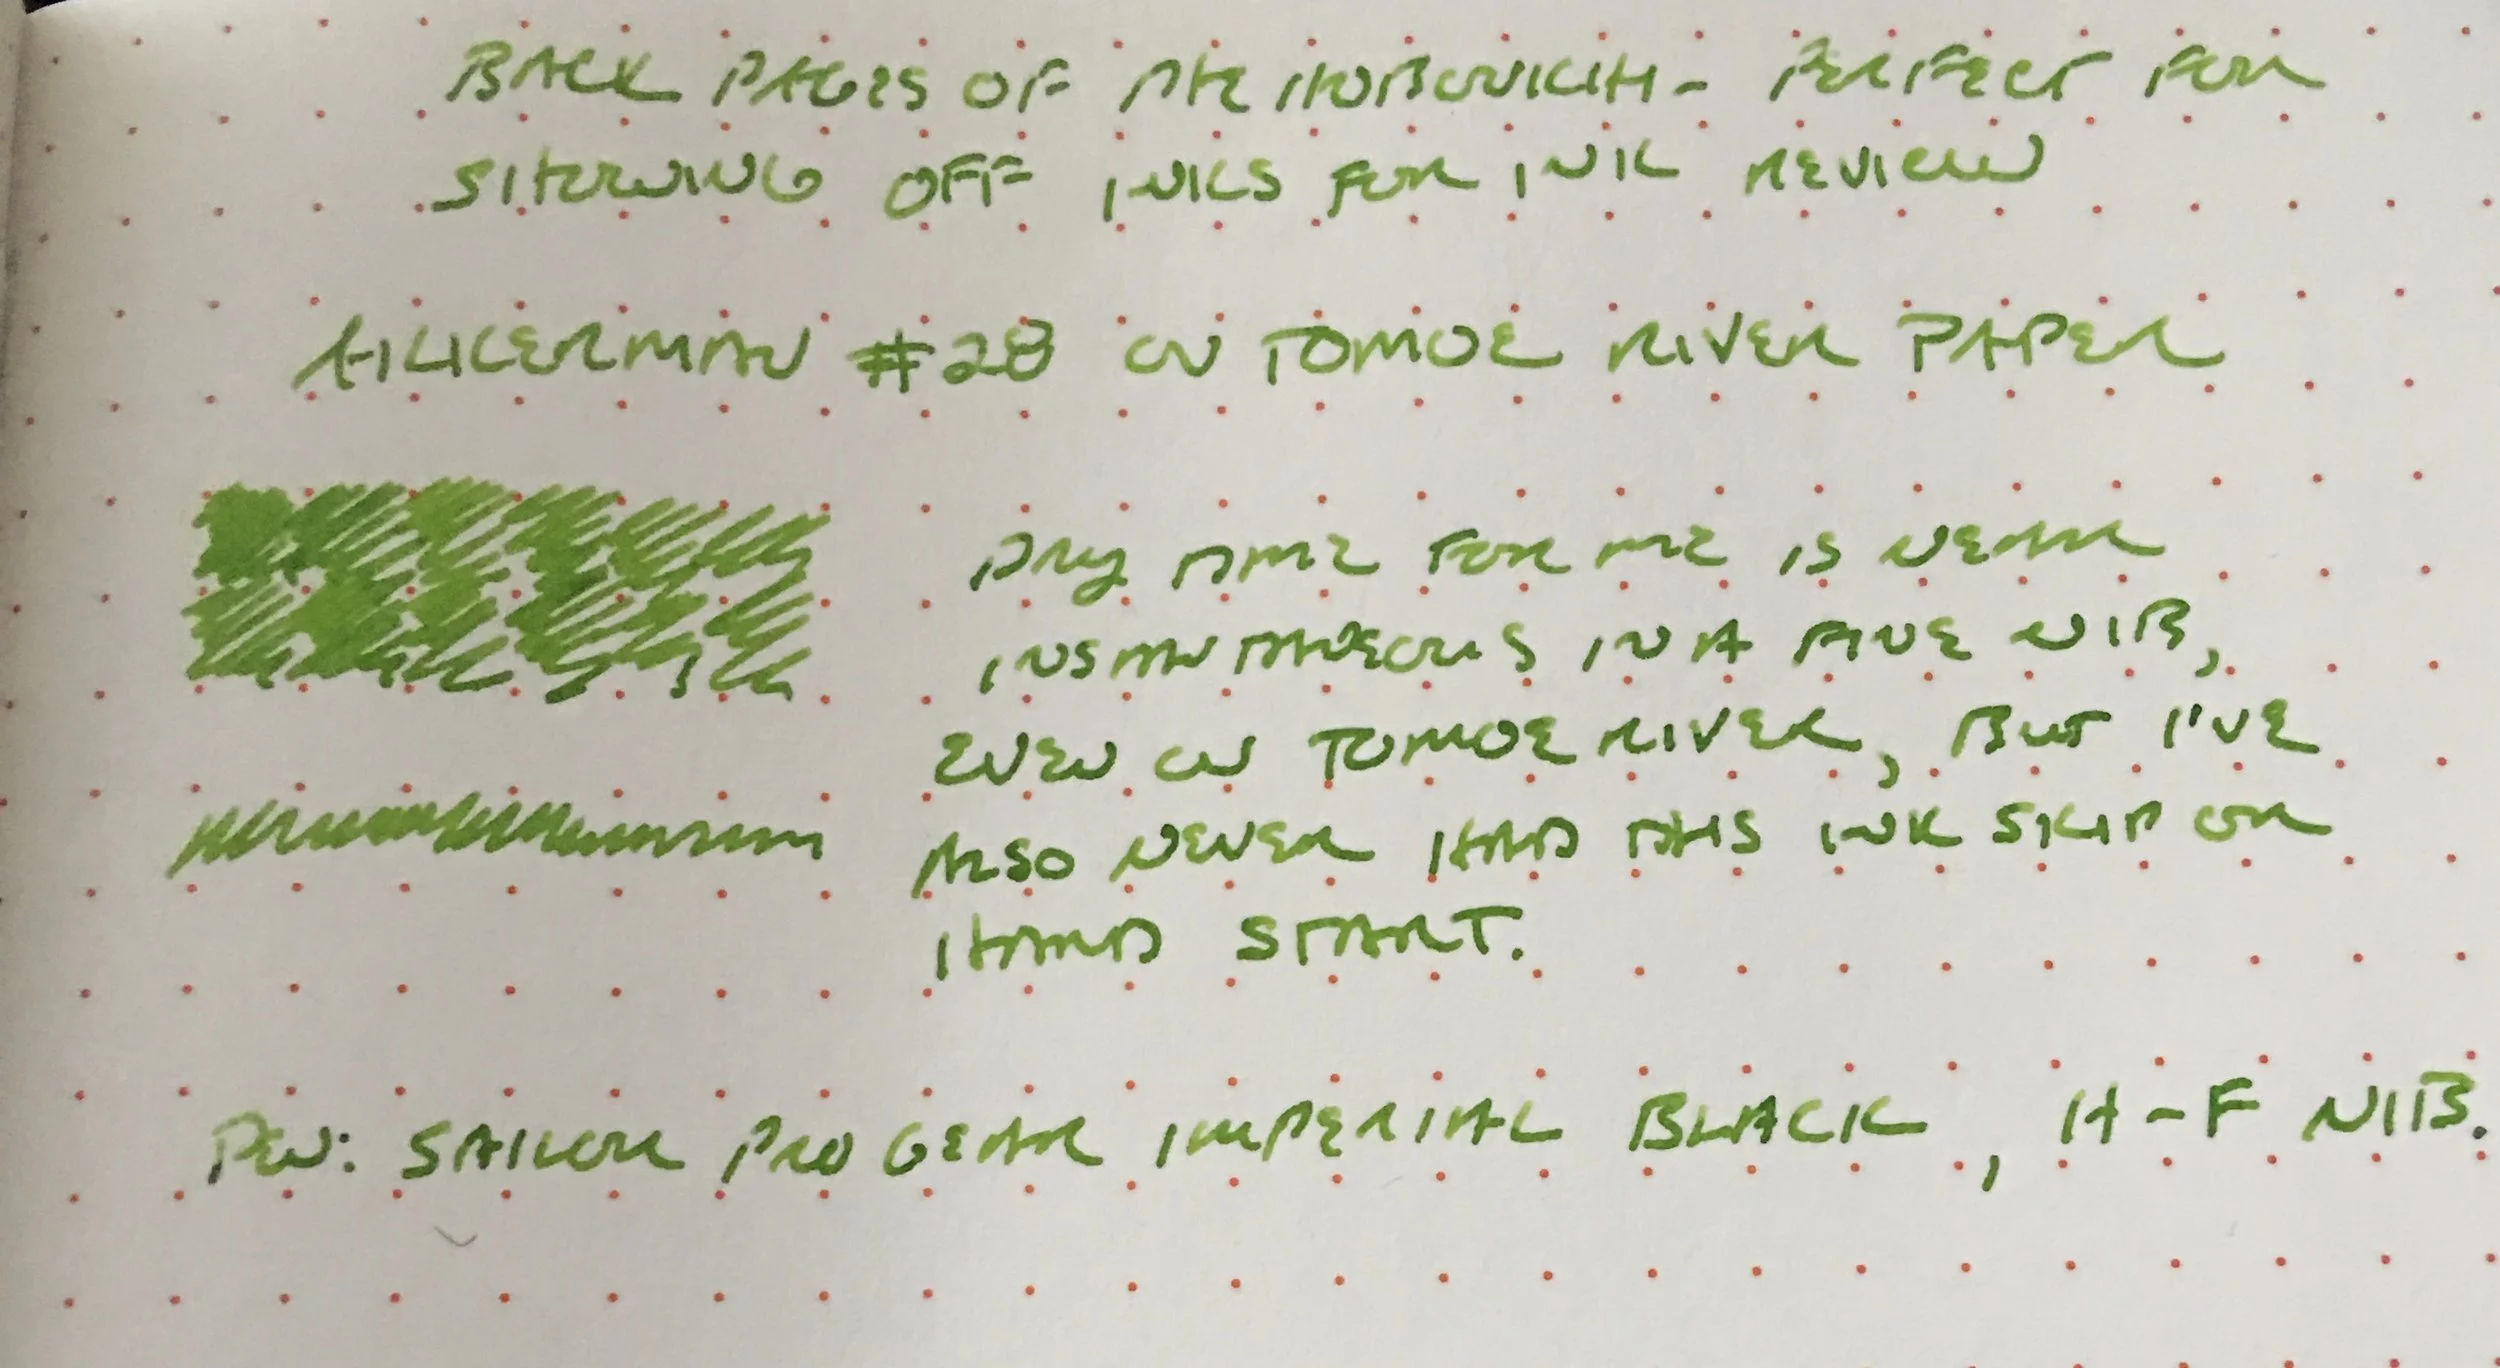 BACK PAGES OF THE HOBONICHI - PERFECT FOR
SHOWING OFF INKS FOR INK REVIEW
AKKERMAN #28 ON TOMOE RIVER PAPER
DRY TIME FOR ME IS NEAR
INSTANTANEOUS IN A FINE NIB,
EVEN ON TOMOE RIVER, BUT I'VE
ALSO NEVER HAD THIS INK SKIP OR
HARD START.
PEN: SAILOR PRO GEAR IMPERIAL BLACK, H-F NIB.